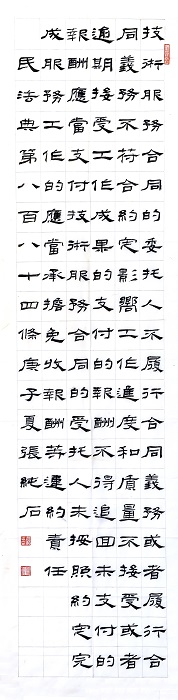 技術服務合同的委托人不履行合同義務或者履行合
同義務不符合約定影響工作進度和質量不接受或者
逾期接受工作成果的支付的報酬不得追回未支付的
報酬應當支付技術服務合同的受托人未按照約定完
成服務工作的應當承擔免收報酬等違約責任
民法典第八百八十四條庚子夏張純石